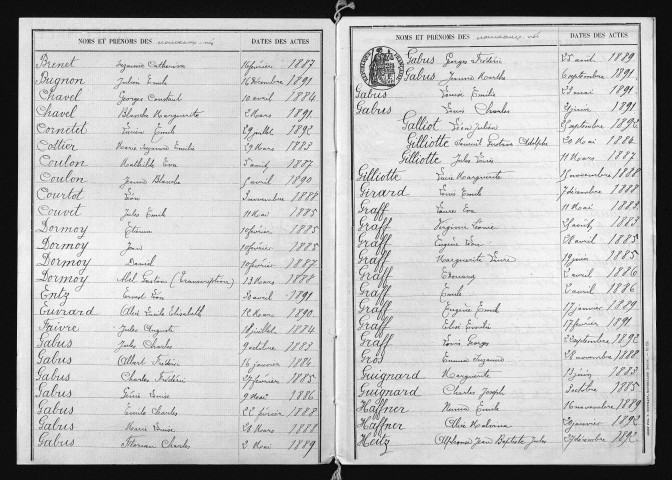 NOMS ET PRÉNOMS DES nouveaux-nés DATES DES ACTES
Brenet Suzanne Catherine 16 février 1887
Bugnon Julien Emile 16 décembre 1891
Chavel Georges Constant 10 avril 1884
Chavel Blanche Marguerite 2 Mars 1891
Cornetet Lucien Emile 29 juillet 1892
Cottier Marie Suzanne Emilie 29 Mars 1883
Coulon Mathilde Eva 5 avril 1887
Coulon Jeanne Blanche 5 avril 1890
Courtot Léon novembre 1888
Couvet Jules Emile 11 Mai 1885
Dormoy Etienne 10 février 1885
Dormoy Jean 10 février 1885
Dormoy Daniel 10 février 1887
Dormoy Abel Gustave (Transcription) 13 Mars 1888
Entz Ernest Léon avril 1891
Euvrard Alice Emilie Elisabeth 12 Mars 1890
Faivre Jules Auguste juillet 1884
Gabus Jules Charles 9 octobre 1883
Gabus Albert Frédéric 16 janvier 1884
Gabus Charles Frédéric 27 février 1885
Gabus Louise 9 Mai 1886
Gabus Emile Charles 22 février 1888
Gabus Marie Louise 20 Mars 1888
Gabus Florian Charles 2 Mai 1889
NOMS ET PRÉNOMS DES nouveaux-nés DATES DES ACTES
Gabus Georges Frédéric 25 avril 1889
Gabus Jeanne Marthe 6 septembre 1891
Gabus Louise Emilie 23 mai 1891
Gabus Louis Charles juin 1891
Galliot Léon Julien septembre 1892
Gilliotte Samuel Gustave Adolphe 20 Mai 1884
Gilliotte Jules Louis 11 Mars 1887
Gilliotte Lucie Marguerite 15 novembre 1888
Girard Louis Emile 7 décembre 1888
Graff Laure Eva 11 Mai 1883
Graff Virginie Louise 25 avril 1883
Graff Eugène Léon 28 avril 1885
Graff Marguerite Laure 19 juin 1885
Graff Edouard 2 avril 1886
Graff Emile 2 avril 1886
Graff Eugène Emile 17 janvier 1889
Graff Elise Emilie 17 février 1891
Graff Louis Georges septembre 1892
Gros Emma Suzanne 28 novembre 1888
Guignard Marguerite 13 juin 1883
Guignard Charles Joseph octobre 1885
Haffner Henri Emile 16 novembre 1889
Haffner Alice janvier 1892
Heitz Alphonse Jean Baptiste Jules 27 décembre 1892